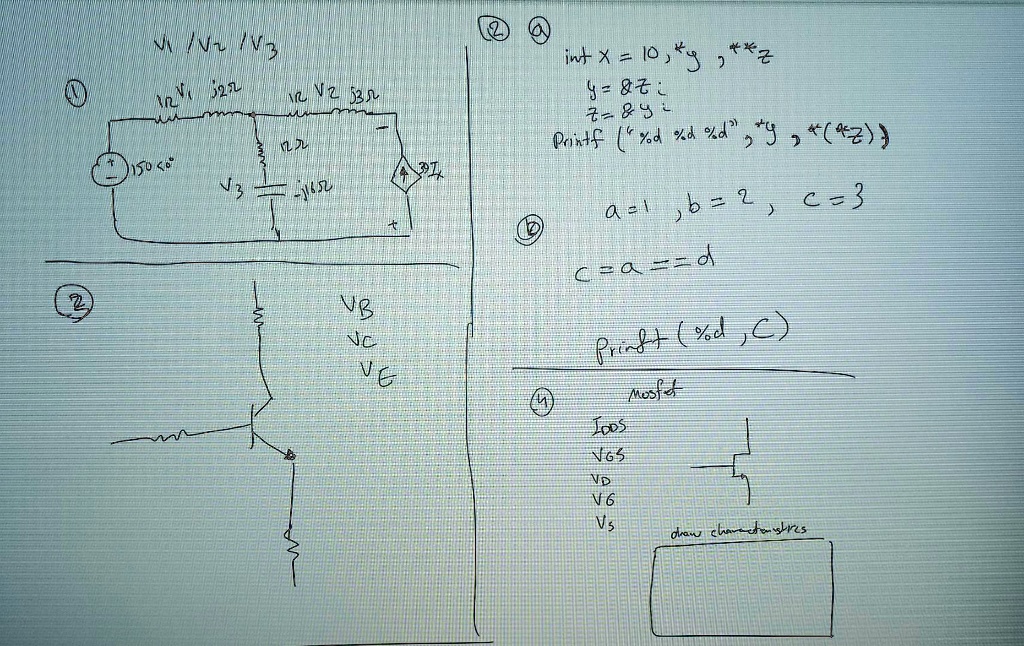 V1 / V2 / V3
①
1Ω V1 j2Ω
1Ω V2 j3Ω
150<0°
+
-
12Ω
V3
-j16Ω
-
39Ix
+
② ⓐ
int x = 10, *y , **z
y = &z ;
z = &y ;
Printf ("%d %d %d", *y , *(*z))
ⓑ
a=1 , b=2 , c=3
c = a == d
printf (%d , C)
③
VB
VC
VE
④
mosfet
IDDS
VGS
VD
VG
VS
draw charactaristics